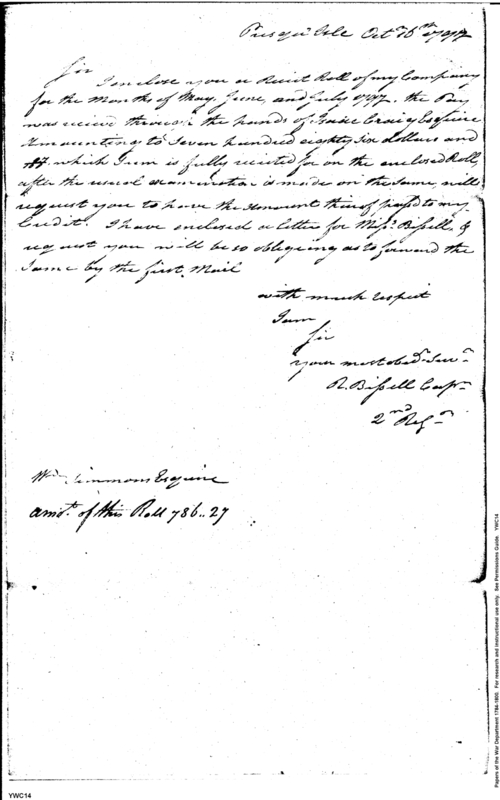 Presqu'Isle Octr 16th 1797
Sir
I enclose you a Receit Roll of my Company
for the Months of May, June, and July 1797. the Pay
was receive through the hands of Isaac Craig Esquire
Amounting to Seven hundred eighty Six dollars and
which Sum is fully receited for on the enclosed Roll,
after the usual examination is made on the same, will
request you to have the Amount thereof passd to my
Credit. I have enclosed a letter for Miss. Bissell, &
request you will be so obligeing as to forward the
Same by the first Mail
with much respect
I am
Sir
your most obedt. Servt
R. Bissell Capn
2nd Regt
Wm Simmons Esquire
Amot. of this Roll 786..27
YWC14
Papers of the War Department 1784-1800. For research and instructional use only. See Permissions Guide. YWC14